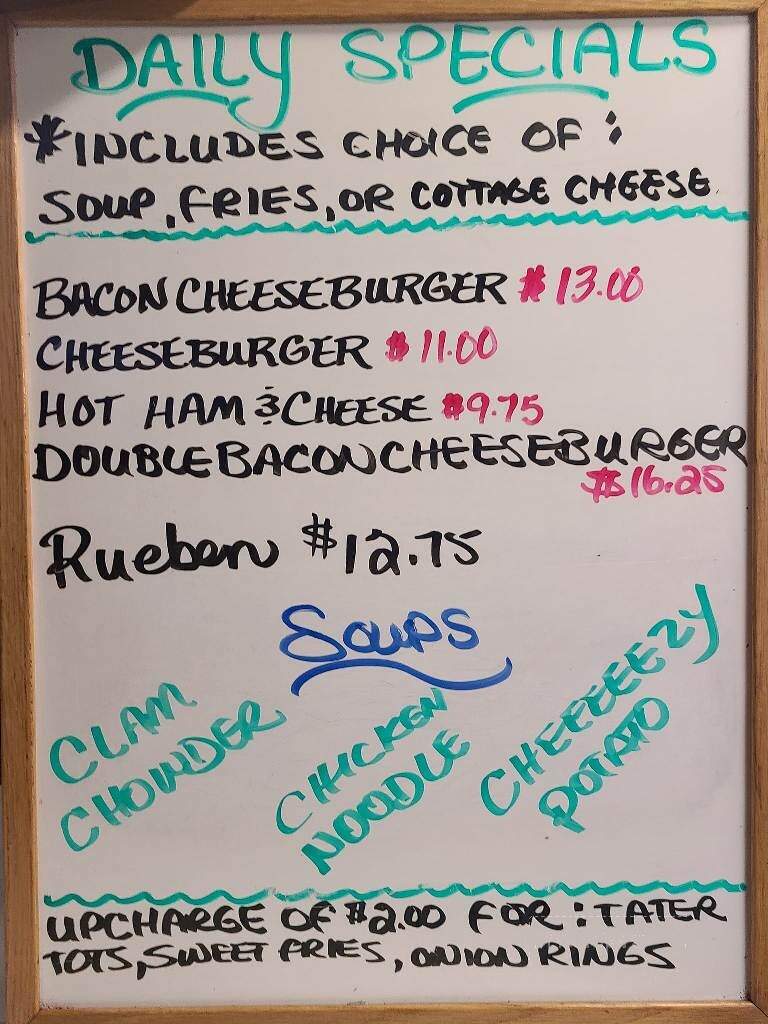 DAILY SPECIALS
*INCLUDES CHOICE OF:
SOUP, FRIES, OR COTTAGE CHEESE
BACON CHEESEBURGER $13.00
CHEESEBURGER $11.00
HOT HAM & CHEESE $9.75
DOUBLE BACON CHEESEBURGER
$16.25
Rueben $12.75
SOUPS
CLAM
CHOWDER
CHICKEN
NOODLE
CHEEEEEZY
POTATO
UPCHARGE OF $2.00 FOR: TATER
TOTS, SWEET FRIES, ONION RINGS